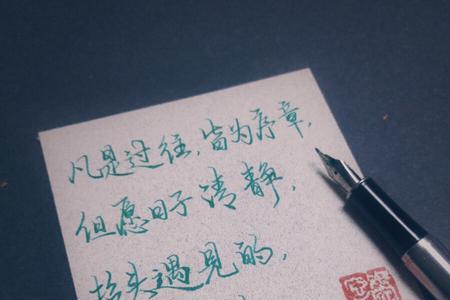 凡是过往，皆为序章，
但愿日子清静，
抬头遇见的，